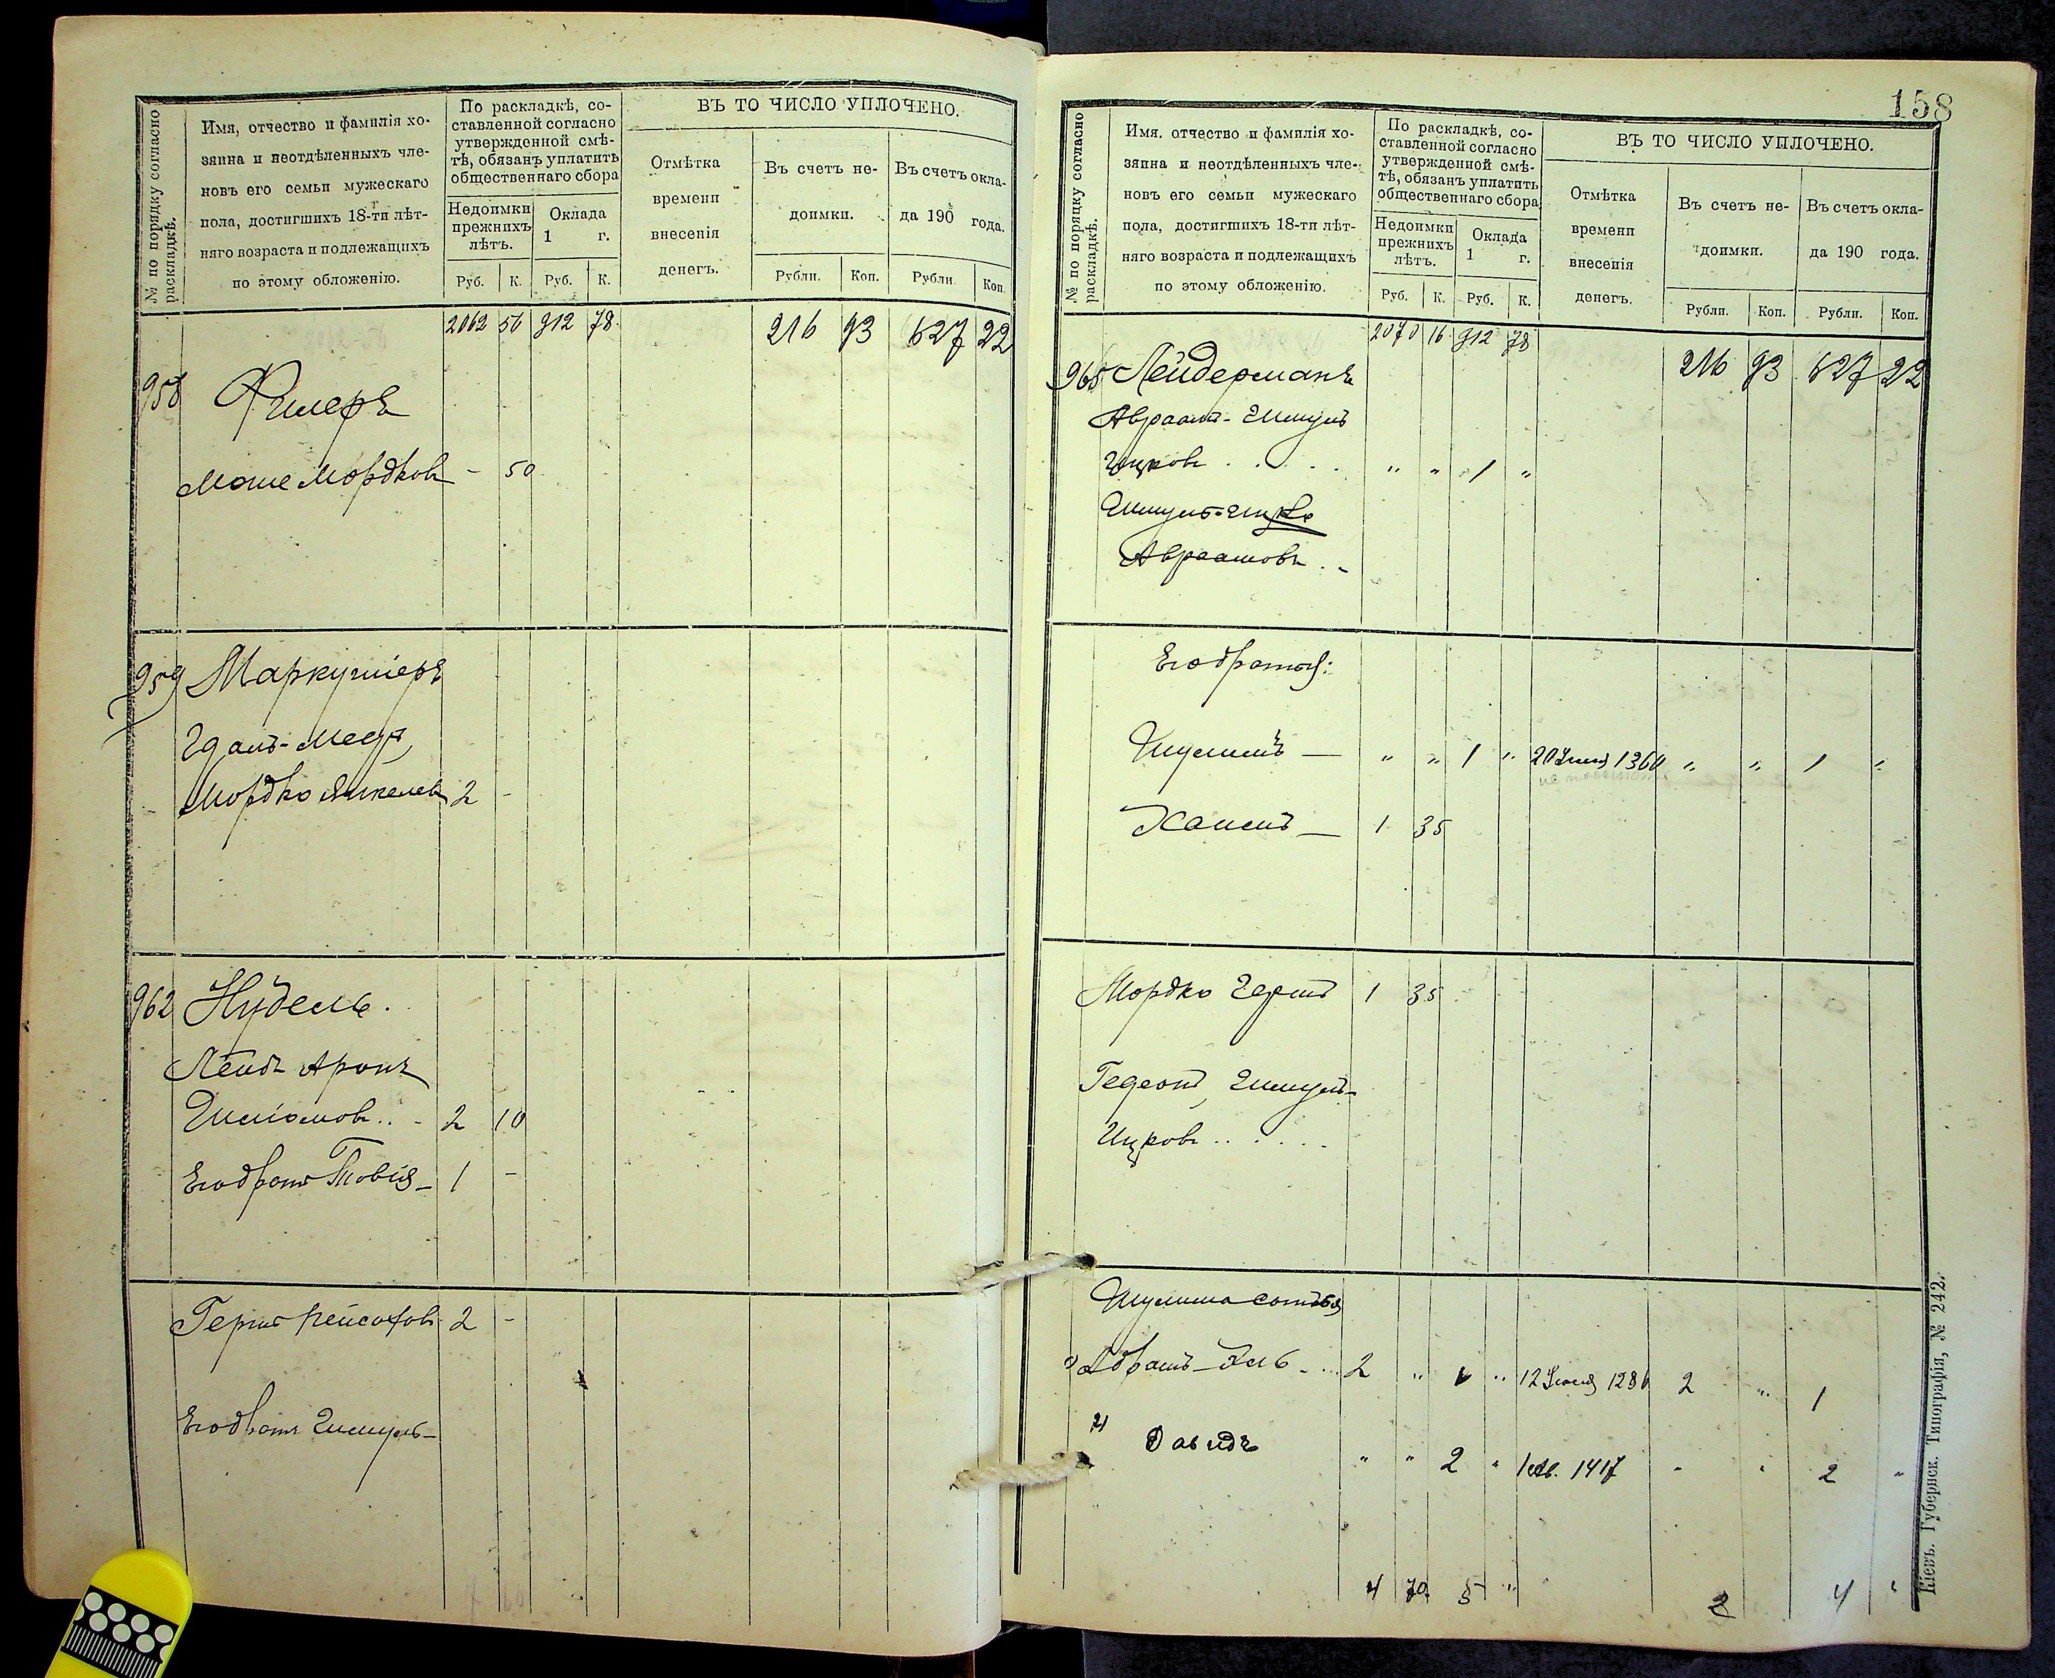 № по порядку согласно раскладкѣ.
Имя, отчество и фамилія хо-
зяина и неотдѣленныхъ чле-
новъ его семьи мужескаго
пола, достигшихъ 18-ти лѣт-
няго возраста и подлежащихъ
по этому обложенію.
По раскладкѣ, со-
ставленной согласно
утвержденной смѣ-
тѣ, обязанъ уплатить
общественнаго сбора
Недоимки прежнихъ лѣтъ.
Оклада 1 г.
Руб. К. Руб. К.
ВЪ ТО ЧИСЛО УПЛОЧЕНО.
Отмѣтка
времени
внесенія
денегъ.
Въ счетъ не-
доимки.
Въ счетъ окла-
да 190 года.
Рубли. Коп. Рубли. Коп.
2062 56 912 78 216 93 627 22
958 Филеръ
Моше Мордковъ - 50
959 Маркушиеръ
Мордко Янкелев 2 -
962 Нудель.
Лейбъ Аронъ
Шліомовъ 2 10
Его братъ Товія 1 -
Гершъ 2 -
Его братъ Шмуль
158
№ по порядку согласно раскладкѣ.
Имя, отчество и фамилія хо-
зяина и неотдѣленныхъ чле-
новъ его семьи мужескаго
пола, достигшихъ 18-ти лѣт-
няго возраста и подлежащихъ
по этому обложенію.
По раскладкѣ, со-
ставленной согласно
утвержденной смѣ-
тѣ, обязанъ уплатить
общественнаго сбора
Недоимки прежнихъ лѣтъ.
Оклада 1 г.
Руб. К. Руб. К.
ВЪ ТО ЧИСЛО УПЛОЧЕНО.
Отмѣтка
времени
внесенія
денегъ.
Въ счетъ не-
доимки.
Въ счетъ окла-
да 190 года.
Рубли. Коп. Рубли. Коп.
2070 16 912 78 216 93 627 22
965 Лейдерманъ
Авраамъ-Шмуль
Ицковъ " " 1 "
Шмуль-Ицко
Авраамовъ
Его братья:
Шулимъ — " " 1 " 20 1360 " " 1 "
Хаимъ — 1 35
Мордко Гершъ 1 35
Гедеонъ, Шмуль-
Ицковъ
Шулима сыновья
Абрамъ-Эль 2 " 1 " 12 Іюня 1286 2 " 1
2) Давидъ " " 2 " 1417 " " 2 "
4 70 5 " 2 4 "
Кіевъ. Губернск. Типографія, № 242.